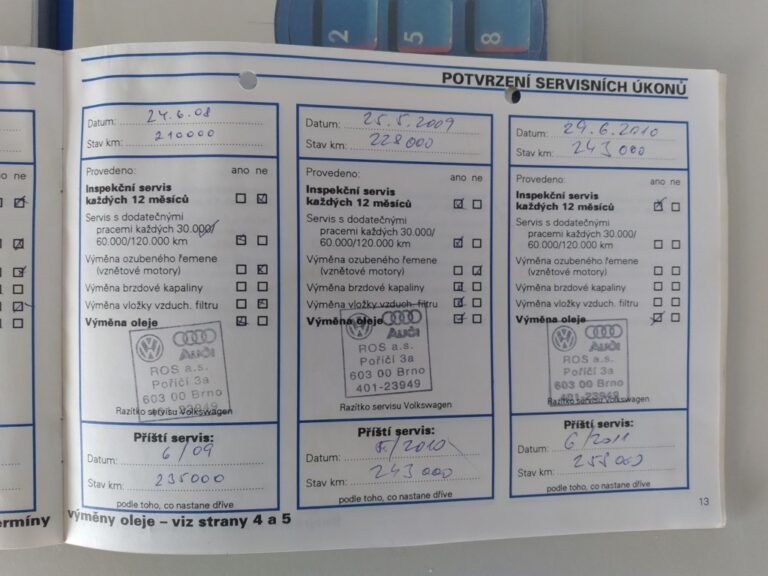 2
5
8
POTVRZENÍ SERVISNÍCH ÚKONŮ
Datum: 24.6.08
Stav km: 210000
Provedeno: ano ne
Inspekční servis
každých 12 měsíců
Servis s dodatečnými
pracemi každých 30.000/
60.000/120.000 km
Výměna ozubeného řemene
(vznětové motory)
Výměna brzdové kapaliny
Výměna vložky vzduch. filtru
Výměna oleje
Audi
ROS a.s.
Poříčí 3a
603 00 Brno
Razítko servisu Volkswagen
Příští servis:
Datum: 6/09
Stav km: 235000
podle toho, co nastane dříve
Datum: 25.5.2009
Stav km: 228000
Provedeno: ano ne
Inspekční servis
každých 12 měsíců
Servis s dodatečnými
pracemi každých 30.000/
60.000/120.000 km
Výměna ozubeného řemene
(vznětové motory)
Výměna brzdové kapaliny
Výměna vložky vzduch. filtru
Výměna oleje
Audi
ROS a.s.
Poříčí 3a
603 00 Brno
401-23949
Razítko servisu Volkswagen
Příští servis:
Datum: 5/2010
Stav km: 243000
podle toho, co nastane dříve
Datum: 29.6.2010
Stav km: 243000
Provedeno: ano ne
Inspekční servis
každých 12 měsíců
Servis s dodatečnými
pracemi každých 30.000/
60.000/120.000 km
Výměna ozubeného řemene
(vznětové motory)
Výměna brzdové kapaliny
Výměna vložky vzduch. filtru
Výměna oleje
Audi
ROS a.s.
Poříčí 3a
603 00 Brno
Razítko servisu Volkswagen
Příští servis:
Datum: 6/2011
Stav km: 258000
podle toho, co nastane dříve
13
ne
ermíny výměny oleje – viz strany 4 a 5